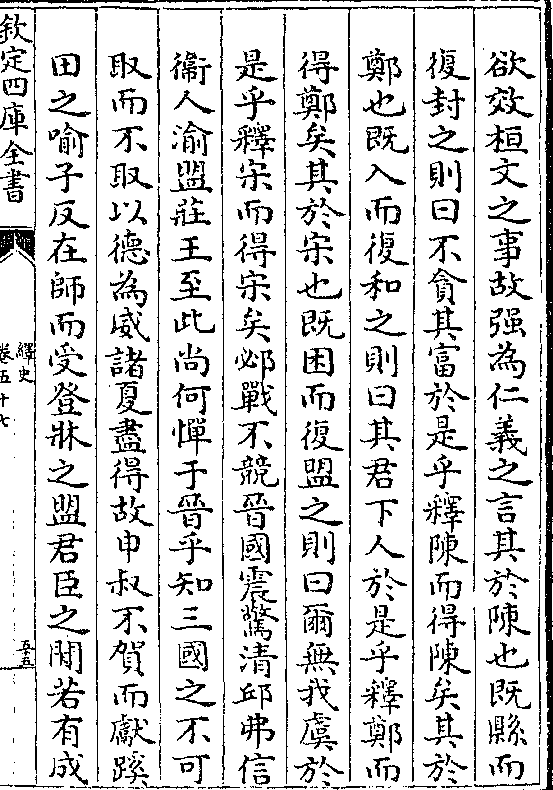 欲效桓文之事故强為仁義之言其於陳也既縣而
復封之則曰不貪其富於是乎釋陳而得陳矣其於
鄭也既入而復和之則曰其君下人於是乎釋鄭而
得鄭矣其於宋也既困而復盟之則曰爾無我虞於
是乎釋宋而得宋矣邲戰不競晉國震驚清邱弗信
衛人渝盟莊王至此尚何憚于晉乎知三國之不可
取而不取以德為威諸夏盡得故申叔不賀而獻蹊
田之喻子反在師而受登牀之盟君臣之間若有成
欽定四庫全書
繹史
卷五十七
五五